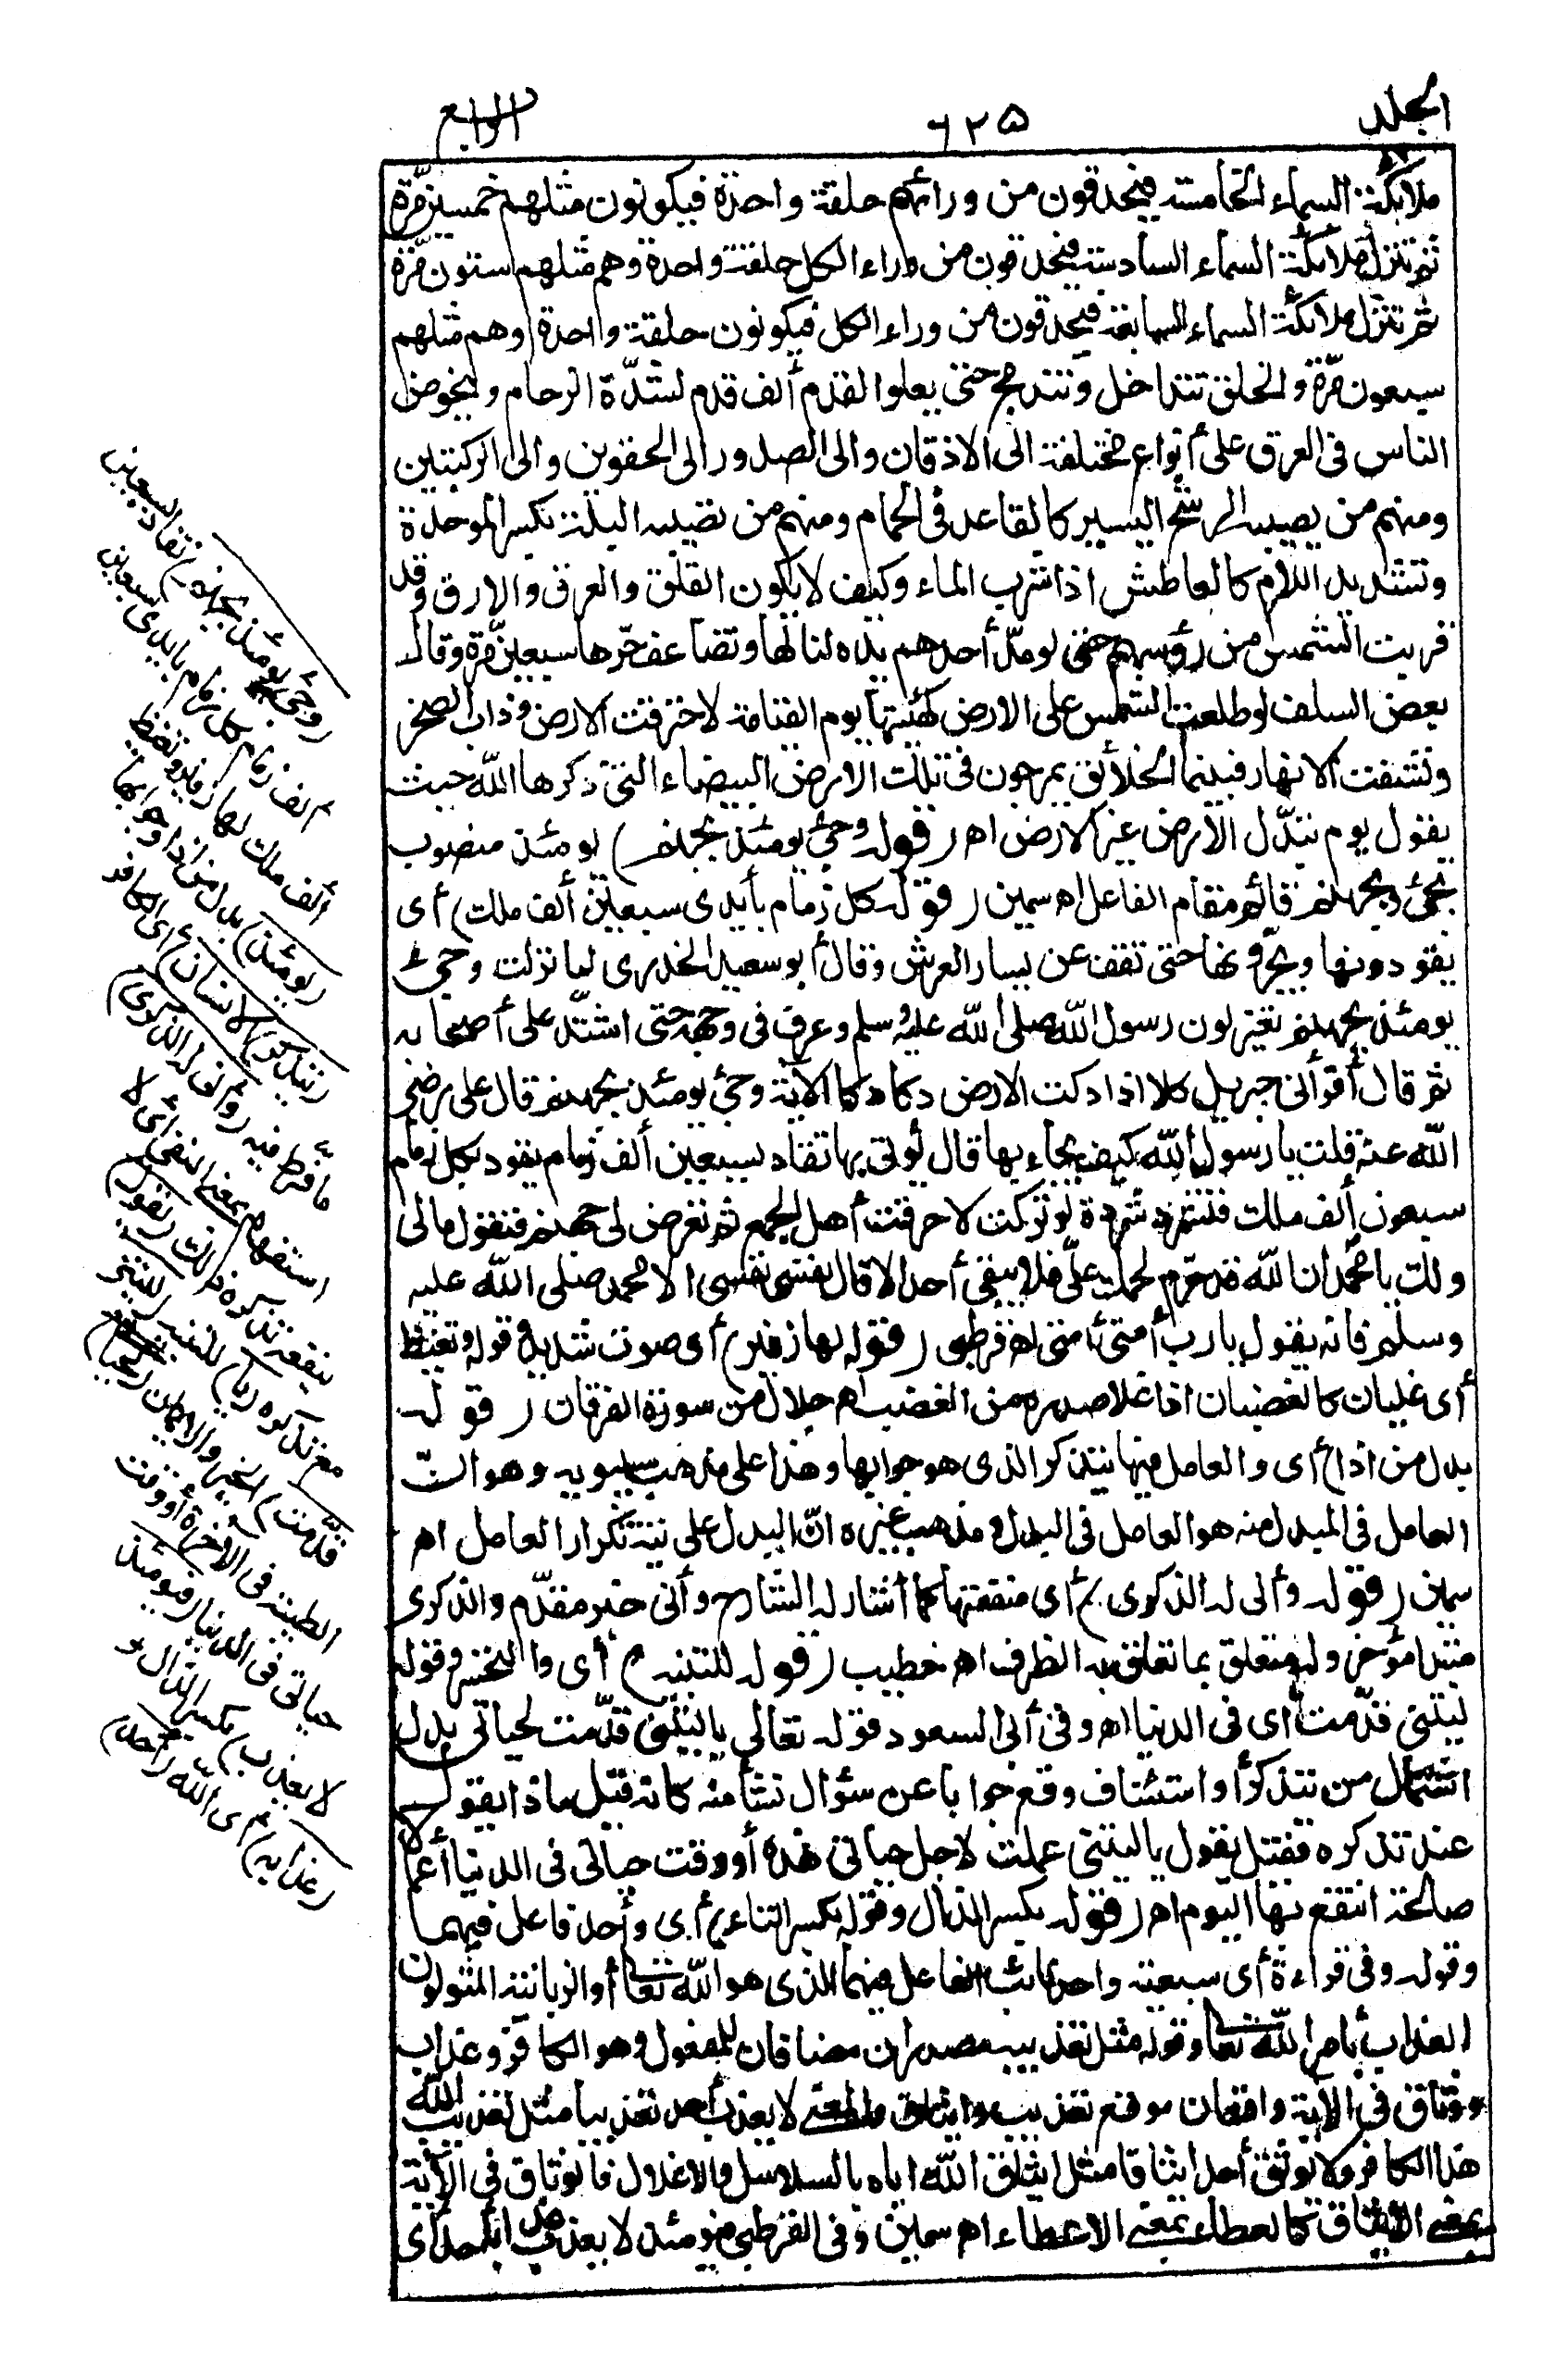 المجلد
٦٢٥
الرابع
ملائكة السماء الخامسة فيحدقون من ورائهم حلقة واحدة فيكونون مثلهم خمسين مرّة
ثم تنزل ملائكة السماء السادسة فيحدقون من وراء الكل حلقة واحدة وهم مثلهم ستون مرّة
ثم تنزل ملائكة السماء السابعة فيحدقون من وراء الكل فيكونون حلقة واحدة وهم مثلهم
سبعون مرّة والخلق تتداخل وتندمج حتى يعلوا القدم ألف قدم لشدّة الزحام ويخوض
الناس فى العرق على أنواع مختلفة الى الاذقان والى الصدور والى الحقوين والى الركبتين
ومنهم من يصيبه الرشح اليسير كالقاعد فى الحمام ومنهم من تصيبه البلة بكسر الموحدة
وتشديد اللام كالعاطش اذا شرب الماء وكيف لا يكون القلق والعرق والارق وقد
قربت الشمس من رؤسهم حتى لو مدّ أحدهم يده لنالها وتضاعف حرّها سبعين مرّة وقال
بعض السلف لو طلعت الشمس على الارض كهيئتها يوم القيامة لاحترقت الارض وذاب الصخر
ونشفت الانهار فبينما الخلائق يمرجون فى تلك الارض البيضاء التى ذكرها الله حيث
يقول يوم تبدّل الأرض غير الارض اهـ (قوله وجئ يومئذ بجهنم) يومئذ منصوب
بجئ وبجهنم قائم مقام الفاعل اهـ سمين (قوله كل زمام بأيدى سبعين ألف ملك) أى
يقودونها ويجرّونها حتى تقف عن يسار العرش وقال أبو سعيد الخدرى لما نزلت وجئ
يومئذ بجهنم تغير لون رسول الله صلى الله عليه وسلم وعرف فى وجهه حتى اشتدّ على أصحابه
ثم قال أقرأنى جبريل كلا اذا دكت الارض دكا دكا الآية وجئ يومئذ بجهنم قال على رضى
الله عنه قلت يا رسول الله كيف يجاء بها قال يؤتى بها تقاد بسبعين ألف زمام يقود بكل زمام
سبعون ألف ملك فتشرد شردة لو تركت لاحرقت أهل الجمع ثم تعرض لى جهنم فتقول مالى
ولك يا محمد ان الله قد حرّم لحمك علىّ فلا يبقى أحد الا قال نفسى نفسى الا محمد صلى الله عليه
وسلم فانه يقول يا رب أمتى أمتى اهـ قرطبى (قوله لها زفير) أى صوت شديد وقوله وتغيظ
أى غليان كالغضبان اذا غلا صدره من الغضب اهـ جلال من سورة الفرقان (قوله
بدل من اذا) أى والعامل فيها يتذكر الذى هو جوابها وهذا على مذهب سيبويه وهو انّ
العامل فى المبدل منه هو العامل فى البدل ومذهب غيره انّ البدل على نية تكرار العامل اهـ
سمين (قوله وأنى له الذكرى) أى منفعتها كما أشار له الشارح وأنى خبر مقدّم والذكرى
مبتدا مؤخر وله متعلق بما تعلق به الظرف اهـ خطيب (قوله للتنبيه) أى والتحسر وقوله
ليتنى قدّمت أى فى الدنيا اهـ وفى أبى السعود قوله تعالى يا ليتنى قدّمت لحياتى بدل
اشتمال من يتذكر أو استئناف وقع جوابا عن سؤال نشأ منه كانه قيل ماذا يقول
عند تذكره فقيل يقول يا ليتنى عملت لاجل حياتى هذه أو وقت حياتى فى الدنيا أعمالا
صالحة انتفع بها اليوم اهـ (قوله بكسر الذال وقوله بكسر الثاء) أى وأحد فاعل فيهما
وقوله وفى قراءة أى سبعية واحد نائب الفاعل فيهما الذى هو الله تعالى أو الزبانية المتولون
العذاب بأمر الله تعالى وقوله مثل تعذيبه مصدران مضافان للمفعول وهو الكافر وعذاب
ووثاق فى الآية واقعان موقع تعذيب وايثاق والمعنى لا يعذب أحد تعذيبا مثل تعذيب الله
هذا الكافر ولا يوثق أحد ايثاقا مثل ايثاق الله اياه بالسلاسل والاغلال فالوثاق فى الآية
بمعنى الايثاق كالعطاء بمعنى الاعطاء اهـ سمين وفى القرطبى فيومئذ لا يعذب عذابه أحد أى
(وجئ يومئذ بجهنم) تقاد بسبعين
ألف زمام كل زمام بأيدى سبعين
ألف ملك لها زفير وتغيظ
(يومئذ) بدل من اذا وجوابها
(يتذكر الانسان) أى الكافر
ما فرّط فيه (وأنى له الذكرى)
استفهام بمعنى النفى أى لا
ينفعه تذكره ذلك (يقول)
مع تذكره (يا) للتنبيه (ليتنى
قدّمت) الخير والايمان (لحياتى)
الطيبة فى الآخرة أو وقت
حياتى فى الدنيا (فيومئذ
لا يعذب) بكسر الذال
(عذابه) أى الله (أحد)